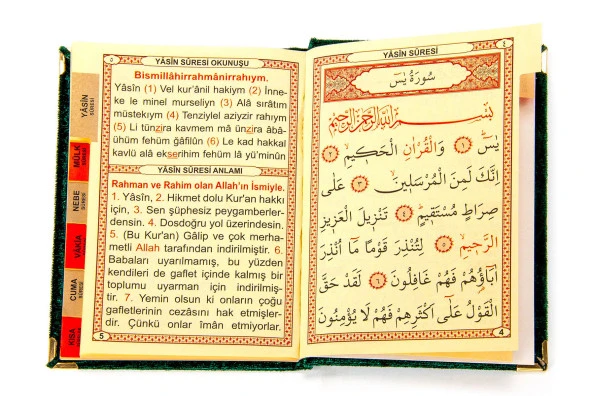 YÂSİN SÛRESİ OKUNUŞU
Bismillâhirrahmânirrahıym.
Yâsîn (1) Vel kur'ânil hakiym (2) İnne-
ke le minel murseliyn (3) Alâ sırâtım
müstekıym (4) Tenziylel aziyzir rahıym
(5) Li tünzira kavmem mâ ünzira âbâ-
ühüm fehüm ğâfilûn (6) Le kad hakkal
kavlü alâ ekserihim fehüm lâ yü'minûn
YÂSİN SÛRESİ ANLAMI
Rahman ve Rahim olan Allah'ın İsmiyle.
1. Yâsîn, 2. Hikmet dolu Kur'an hakkı
için, 3. Sen şüphesiz peygamberler-
densin. 4. Dosdoğru yol üzerindesin.
5. (Bu Kur'an) Gâlip ve çok merha-
metli Allah tarafından indirilmiştir. 6.
Babaları uyarılmamış, bu yüzden
kendileri de gaflet içinde kalmış bir
toplumu uyarman için indirilmiş-
tir. 7. Yemin olsun ki onların çoğu
gafletlerinin cezasını hak etmişler-
dir. Çünkü onlar îman etmiyorlar.
5
YÂSİN SÛRESİ
MÜLK SÛRESİ
NEBE SÛRESİ
VÂKIA
CUMA SÛRESİ
KISA
YÂSİN SÛRESİ
سُورَةُ يٰسٓ
بِسْمِ اللّٰهِ الرَّحْمٰنِ الرَّحِيمِ
يٰسٓ ﴿١﴾ وَالْقُرْاٰنِ الْحَكِيمِ ﴿٢﴾
اِنَّكَ لَمِنَ الْمُرْسَلِينَ ﴿٣﴾ عَلٰى
صِرَاطٍ مُسْتَقِيمٍ ﴿٤﴾ تَنْزِيلَ الْعَزِيزِ
الرَّحِيمِ ﴿٥﴾ لِتُنْذِرَ قَوْمًا مَٓا اُنْذِرَ
اٰبَٓاؤُ۬هُمْ فَهُمْ غَافِلُونَ ﴿٦﴾ لَقَدْ حَقَّ
الْقَوْلُ عَلٰٓى اَكْثَرِهِمْ فَهُمْ لَا يُؤْمِنُونَ
4